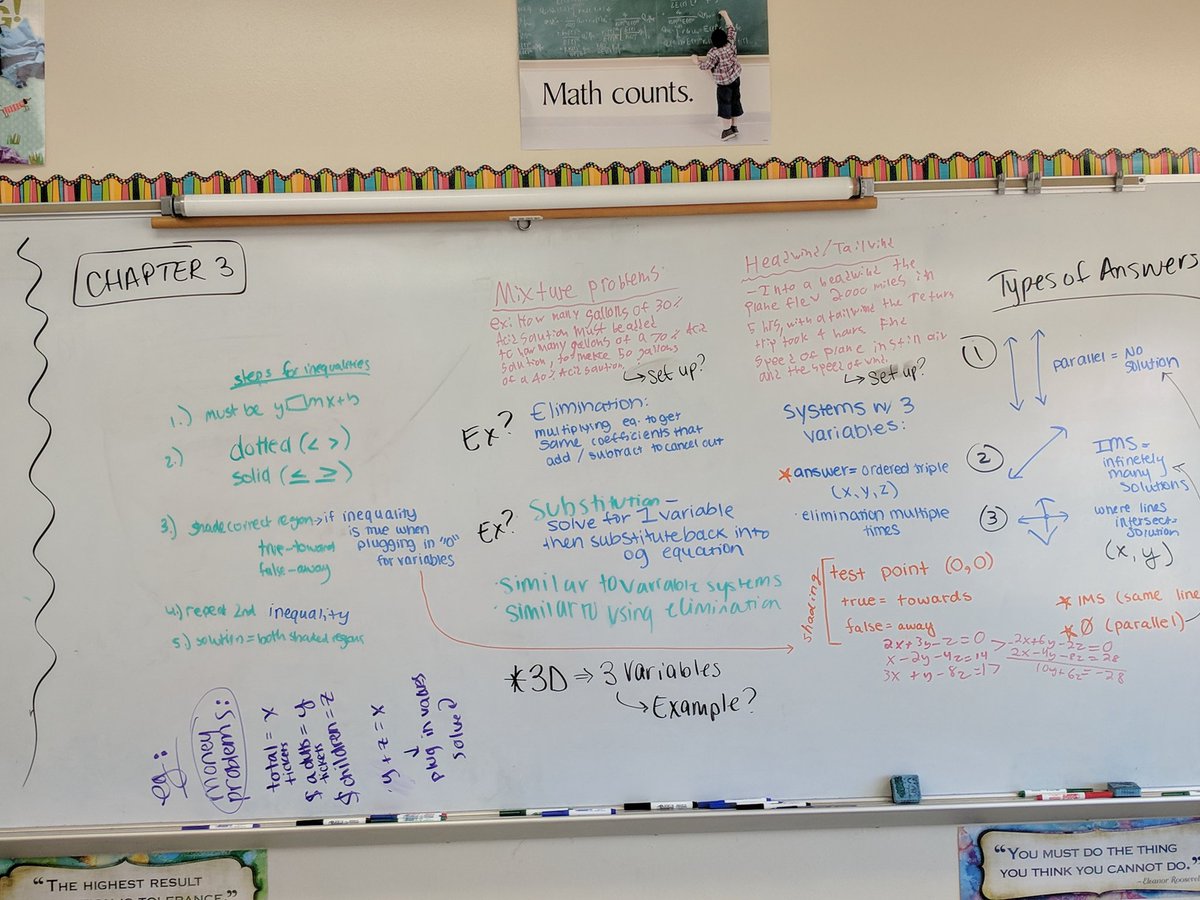 Math counts.
CHAPTER 3
steps for inequalities
1.) must be y□mx+b
2.) dotted (< >)
solid (≤ ≥)
3.) shade correct region → if inequality
is true when
plugging in "0"
for variables
true-toward
false-away
4.) repeat 2nd inequality
5.) solution = both shaded regions
eg:
money
problems:
total = x
tickets
$ adults = y
tickets
$ children = z
y + z = x
↓
plug in values
solve
Mixture problems
ex: How many gallons of 30%
Acid solution must be added
to how many gallons of a 70% Acid
solution, to make 50 gallons
of a 40% Acid solution
↳ set up?
Ex?
Elimination:
multiplying eq. to get
same coefficients that
add / subtract to cancel out
Ex?
Substitution-
solve for 1 variable
then substitute back into
og equation
·similar to variable systems
·similar to using elimination
*3D ⇒ 3 variables
↳ Example?
Headwind/Tailwind
- Into a headwind the
plane flew 2000 miles in
5 hrs, with a tailwind the return
trip took 4 hours. Find
speed of plane in still air
and the speed of wind.
↳ set up?
Systems w/ 3
variables:
*answer = ordered triple
(x, y, z)
·elimination multiple
times
shading
test point (0,0)
true = towards
false = away
2x+3y-z=0 > -2x+6y-2z=0
x-2y-4z=14 2x-4y-8z=28
3x+y-8z=17 > 10y+6z=-28
Types of Answers
1
parallel = No
solution
2
IMS =
infinetely
many
solutions
3
where lines
intersect=
solution
(x, y)
* IMS (same line
* Ø (parallel)
"THE HIGHEST RESULT
IS TOLERANCE."
"YOU MUST DO THE THING
YOU THINK YOU CANNOT DO."
~Eleanor Roosevel